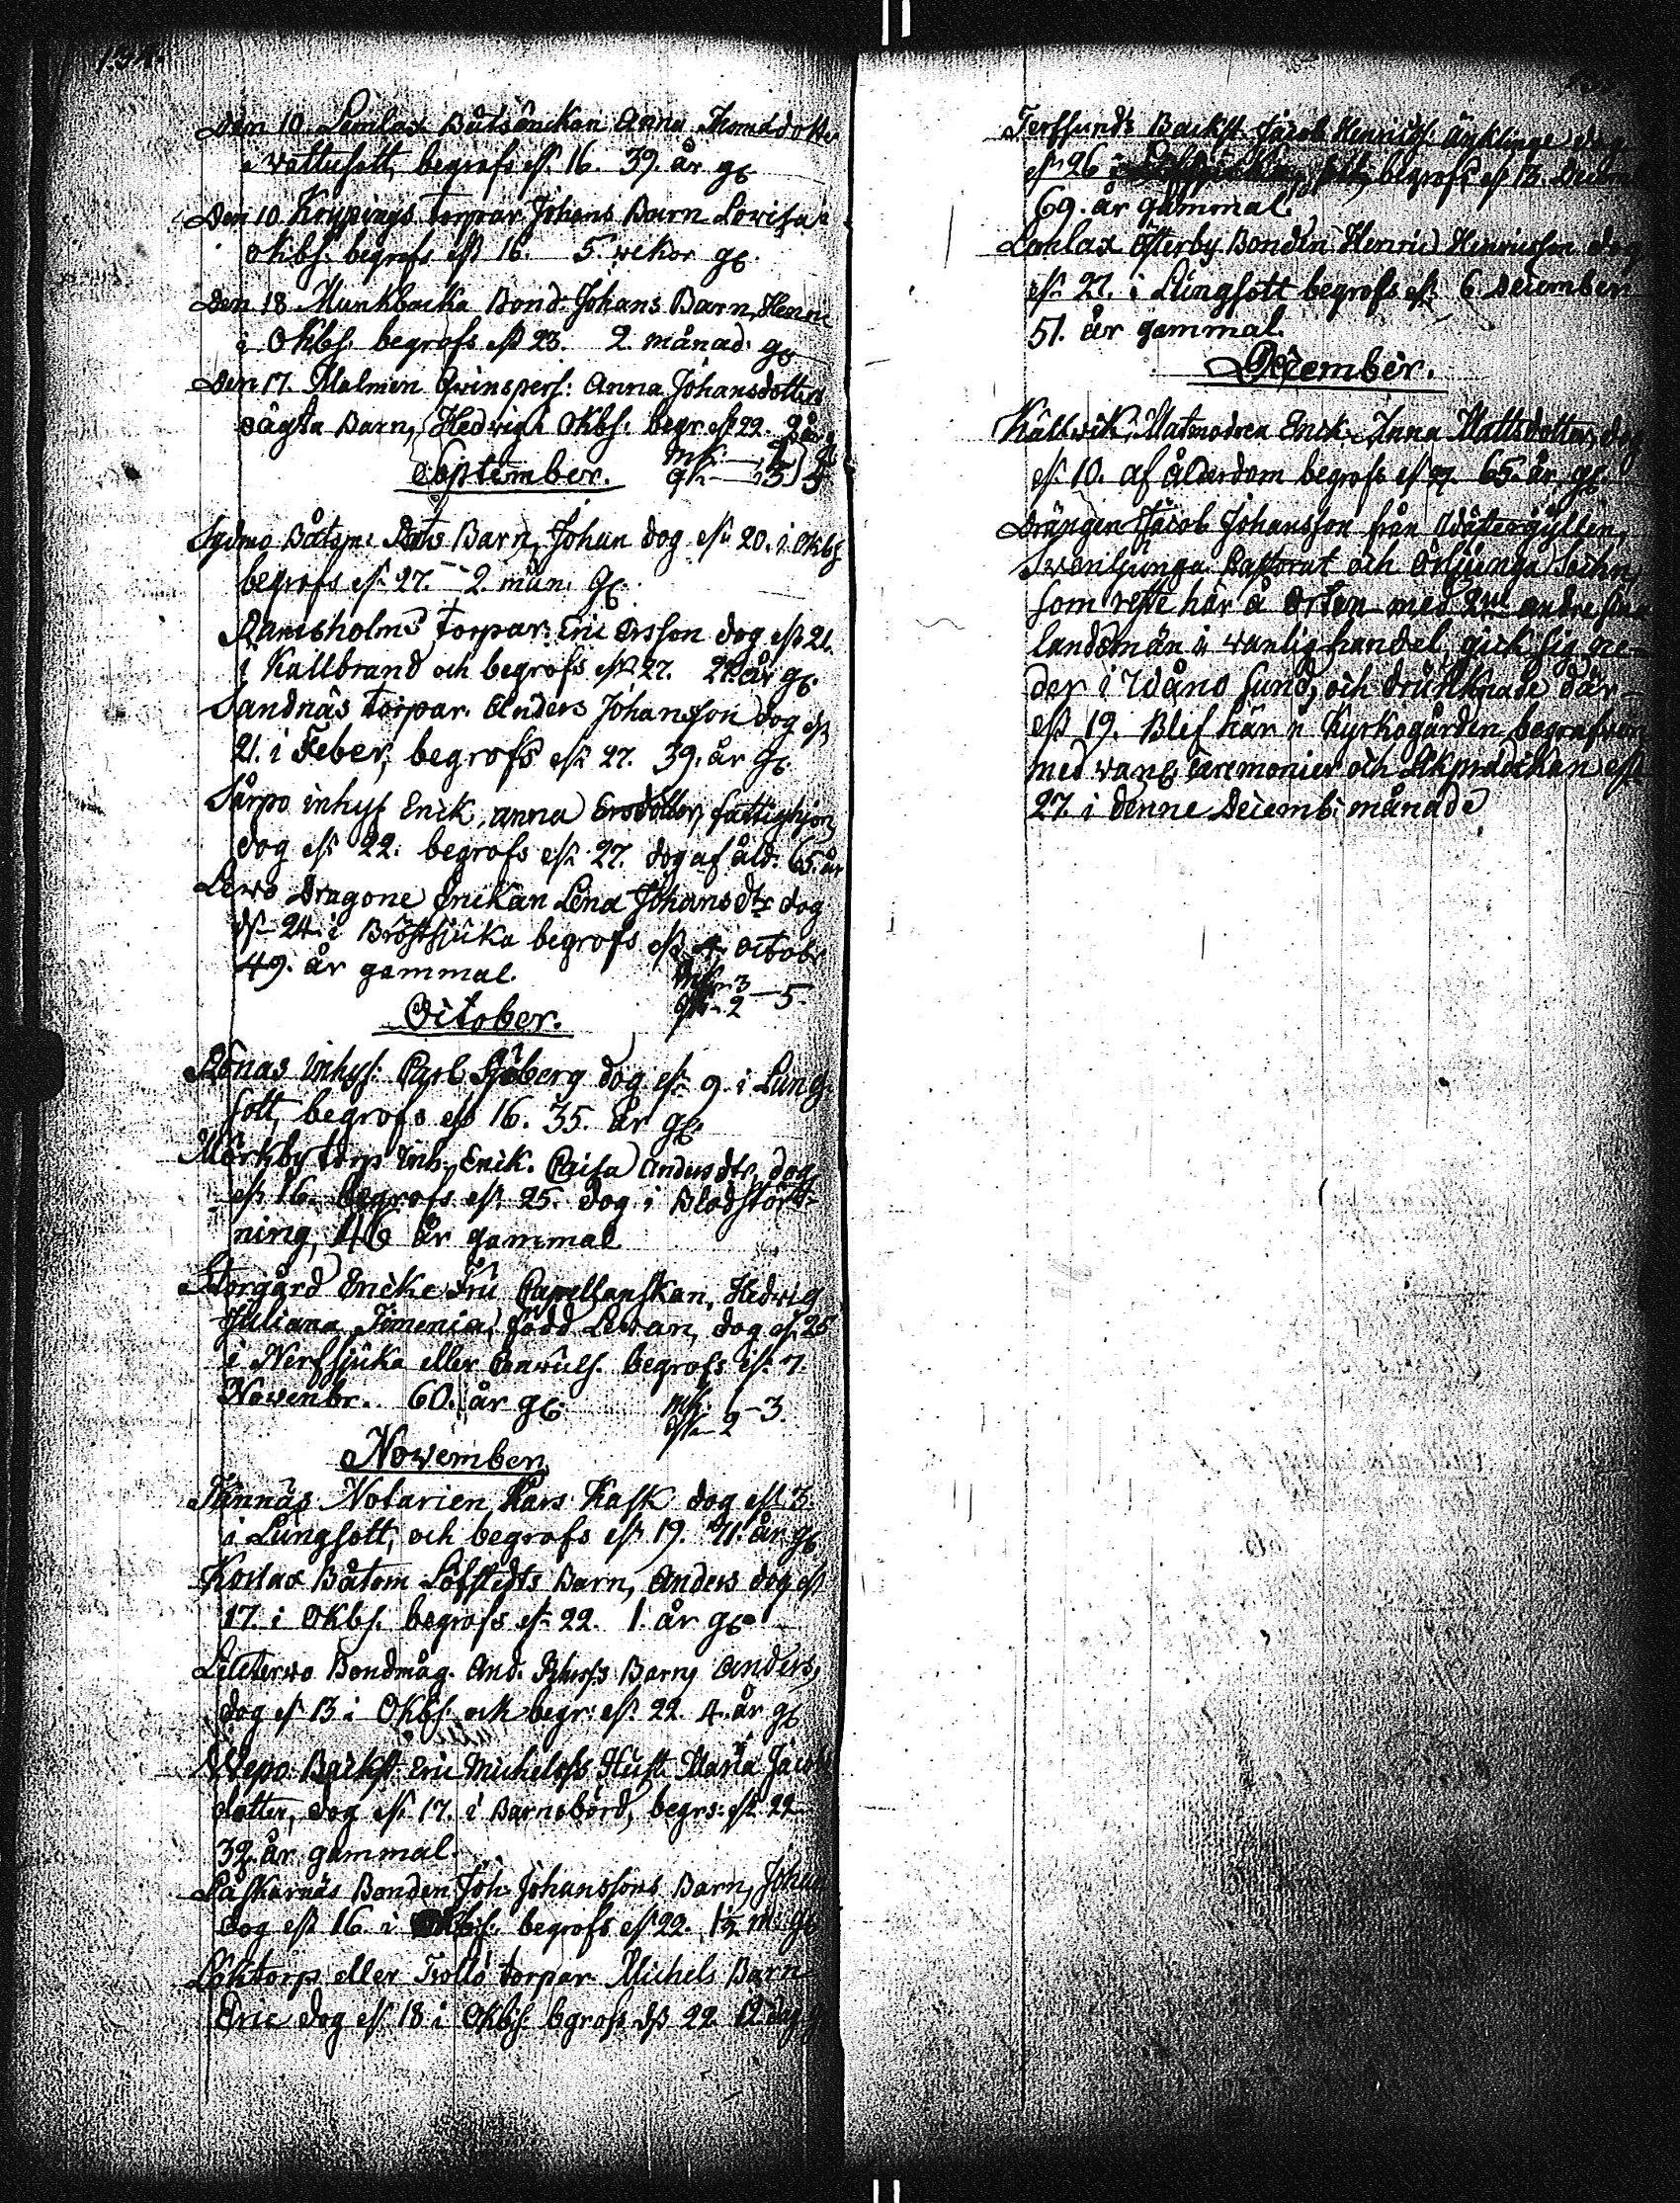 134.
Den 10. Lemlax Båtsänckan Anna Thomædotter
i Wattusott, begrofs d. 16. 39. år gl.
Den 10. Torpar Johans Barn Lowisa
Okbs. begrofs d. 16. 5. wekor gl.
Den 18 Munkbacka Bond. Johans Barn, Henric
i Okbs. begrofs d. 23. 2. månad. gl.
Den 17. Malmen Qwinspers: Anna Johansdotters
oägta Barn, Hedwig i Okbs. begr. d. 22. 2 år
September. mk qk 3 5
Båtsm: Barn, Johan dog d. 20. i Okbs
begrofs d. 27. 2. mån. gl.
Ramsholms Torpar: Eric Ersson dog d. 21.
i Kallbrand och begrofs d. 27. år gl.
Sandnäs Torpar. Anders Johansson dog d.
21. i Feber, begrofs d. 27. 39. år gl.
Sårpo inhys Enck. Anna Ersdotter, fattighjon,
dog d. 22. begrofs d. 27. dog af åld. 65. år
Lewo Dragone Enckan Lena Johansdtr dog
d. 24. i Bröstsjuka begrofs d. 4. Octobr
49. år gammal. mk. 3
October. qk. 2 — 5.
inhys: Carl Sjöberg dog d. 9. i Lung-
sott, begrofs d. 16. 35. år gl.
Mörkby torp inh. Enck. Caisa Andersdtr, dog
d. 16. begrofs d. 25. dog i Blodstört-
ning, 46 år gammal
Storgård Encke Fru Capellanskan, Hedwig
Juliana född dog d. 25
i Nerfsjuka eller Conwuls. begrofs d. 7.
Novembr. 60. år gl. mk. 1 — 3.
qk. 2
November
Tennäs Notarien Lars Kask dog d. 3.
i Lungsott, och begrofs d. 19. 71. år gl
Korlax Båtsm Löfstedts Barn, Anders dog d.
17. i Okbs. begrofs d. 22. 1. år gl.
Lilleterwo Bondmåg. And. Barn Anders,
dog d. 13 i Okbs. och begr: d. 22. 4. år gl
Backst. Eric Michelss. Hust. Maria Jacobs
dotter, dog d. 17. i Barnsbörd, begrs: d. 22
32. år gammal.
Låskarnäs Bonden Joh. Johanssons Barn, Johan
dog d. 16. i Okbs. begrofs d. 22. m. gl
Löktorp eller Trollö torpar Michels Barn
Eric dog d. 18 i Okbs. begrofs d. 22. 12 dag.
Terfsunds Backst. Jacob Henricss. änklinge dog
d. 26 i begrofs d. 13. Decemb
69. år gammal.
Lemlax Österby Bonden Henric Henricsson dog
d. 27. i Lungsott begrofs d. 6 December
51. år gammal.
December.
Källwik, Matmodren Enck. Anna Mattsdotter, dog
d. 10. af Ålderdom begrofs d. 65. år gl.
Drängen Jacob Johansson från
Svenljunga Pastorat och Örljunga Sochn,
som reste här å Orten med 2ne andre sina
landsmän i wanlig handel, gick sig ne-
der i Wånö sund, och drunknade där
d. 19. Blef här i Kyrkogården begrafwen
med wanl. Ceremonier och Likpredikan d.
27. i denne Decemb: månad